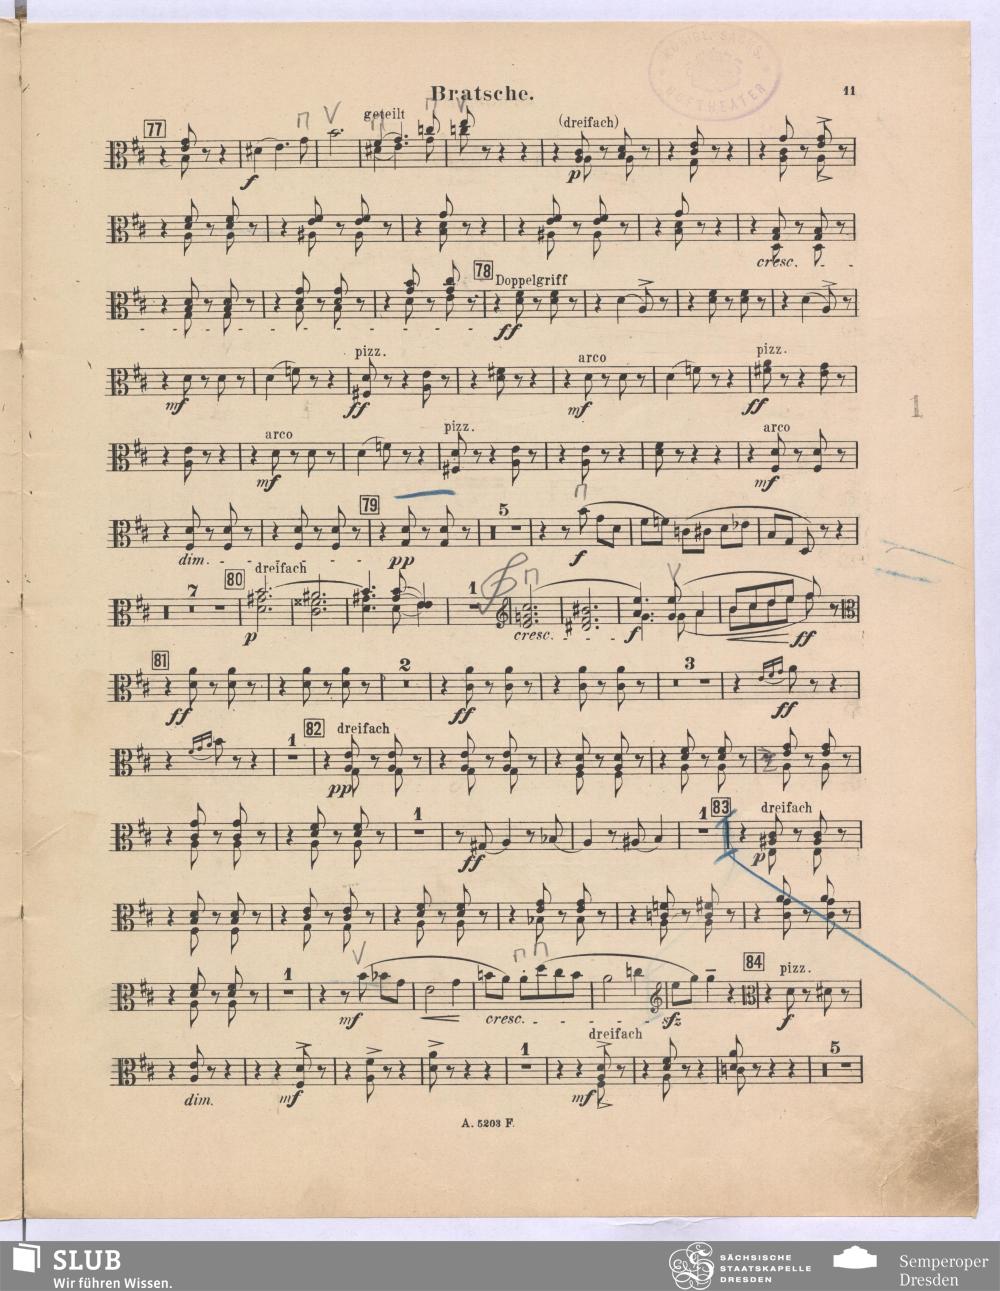 KÖNIGL. SÄCHS. HOFTHEATER
Bratsche. 11
77 geteilt (dreifach)
f p
cresc.
78 Doppelgriff
ff
pizz. arco pizz.
mf ff mf ff
arco pizz. arco
mf ff mf
1
79 5
dim. pp f
7 80 dreifach 1
p cresc. f ff
81 2 3
ff ff ff
1 82 dreifach
pp
1 1 83 dreifach
ff p
1 84 pizz.
mf cresc. sfz f
1 dreifach 5
dim. mf mf
A. 5203 F.
SLUB
Wir führen Wissen.
SÄCHSISCHE
STAATSKAPELLE
DRESDEN
Semperoper
Dresden